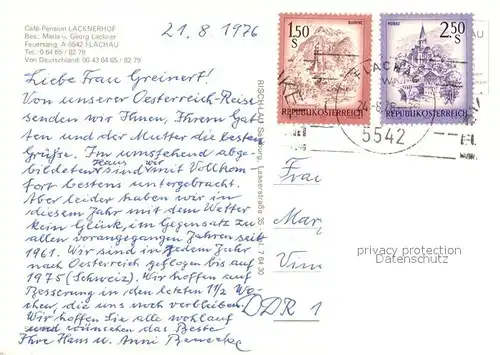 Café-Pension LACKNERHOF
Bes.: Maria u. Georg Lackner
Feuersang, A-5542 FLACHAU
Tel.: 0 64 65 / 82 79
Von Deutschland: 00 43 64 65 / 82 79
21. 8. 1976
Liebe Frau Greinert!
Von unserer Oesterreich-Reise
senden wir Ihnen, Ihrem Gat-
ten und der Mutter die besten
Grüße. Im umstehend abge-
bildeten Haus sind wir mit Vollkom-
fort bestens untergebracht.
Aber leider haben wir in
diesem Jahr mit dem Wetter
kein Glück, im Gegensatz zu
allen vorangegangen Jahren seit
1961. Wir sind in jedem Jahr
nach Oesterreich geflogen bis auf
1975 (Schweiz). Wir hoffen auf
Besserung in den letzten 1 1/2 Wo-
chen, die uns noch verbleiben.
Wir hoffen Sie alle wohlauf
und wünschen das Beste
Ihre Hans u. Anni
RISCHLAU, Salzburg, Lasserstraße 35
64 30
1.50 S
BLUDENZ
REPUBLIK ÖSTERREICH
2.50 S
MURAU
REPUBLIK ÖSTERREICH
FLACHAU
5542
Frau
Mar
DDR 1
privacy protection
Datenschutz